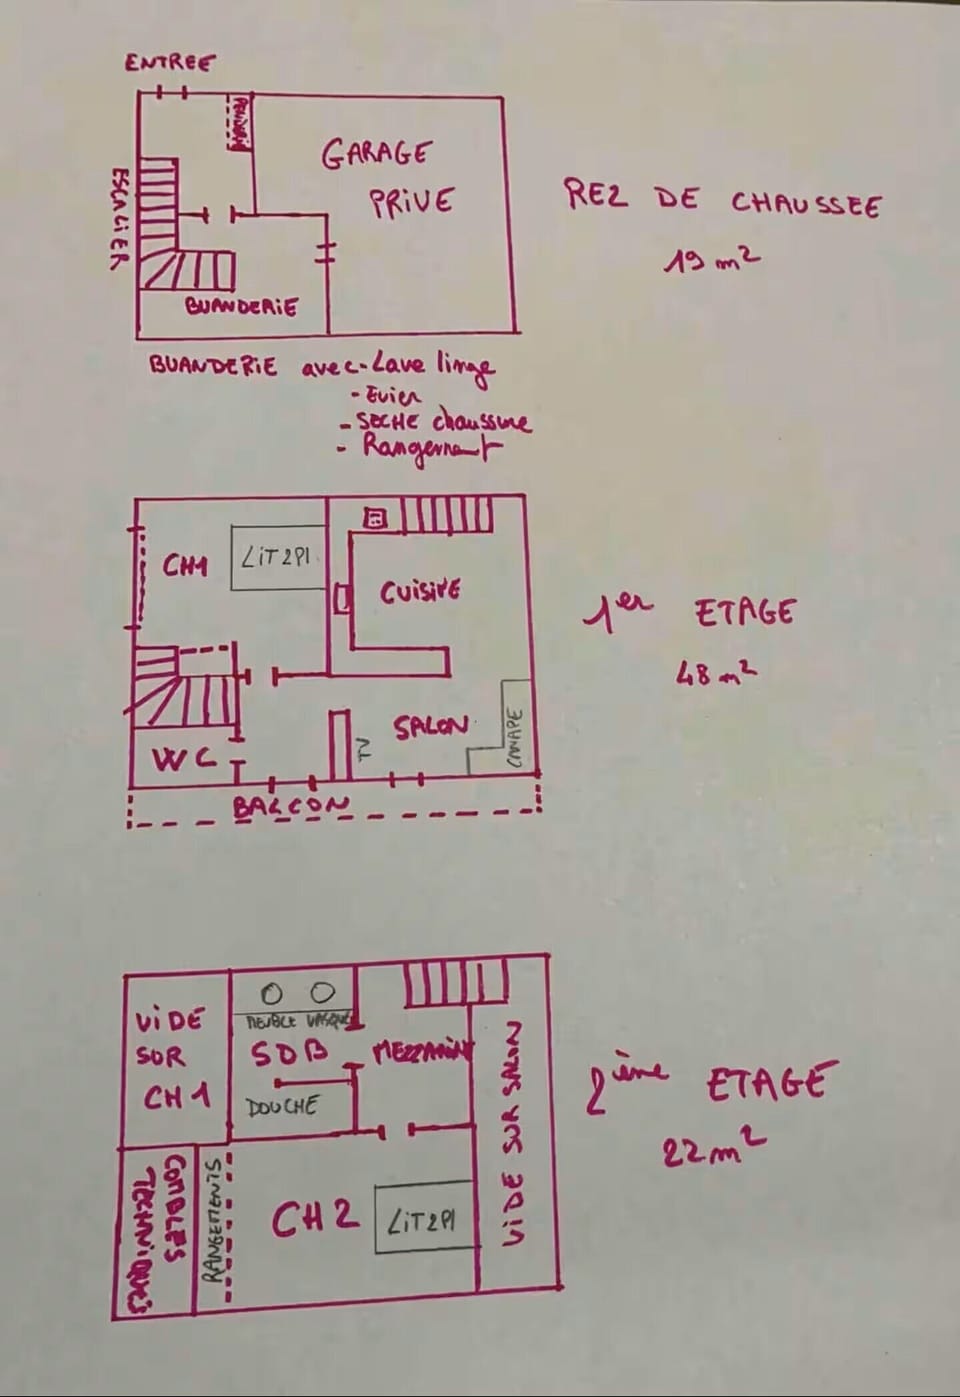 ENTREE
PENDERIE
ESCALIER
GARAGE
PRIVE
REZ DE CHAUSSEE
19 m²
BUANDERIE
BUANDERIE avec - Lave linge
- Evier
- SECHE chaussure
- Rangement
CH1
LIT 2PL
CUISINE
1er ETAGE
48 m²
WC
TV
SALON
CANAPE
BALCON
VIDE
SUR
CH 1
MEUBLE VASQUE
SDB
DOUCHE
MEZZANINE
VIDE SUR SALON
2ième ETAGE
22 m²
COMBLES
TECHNIQUES
RANGEMENTS
CH 2
LIT 2PL